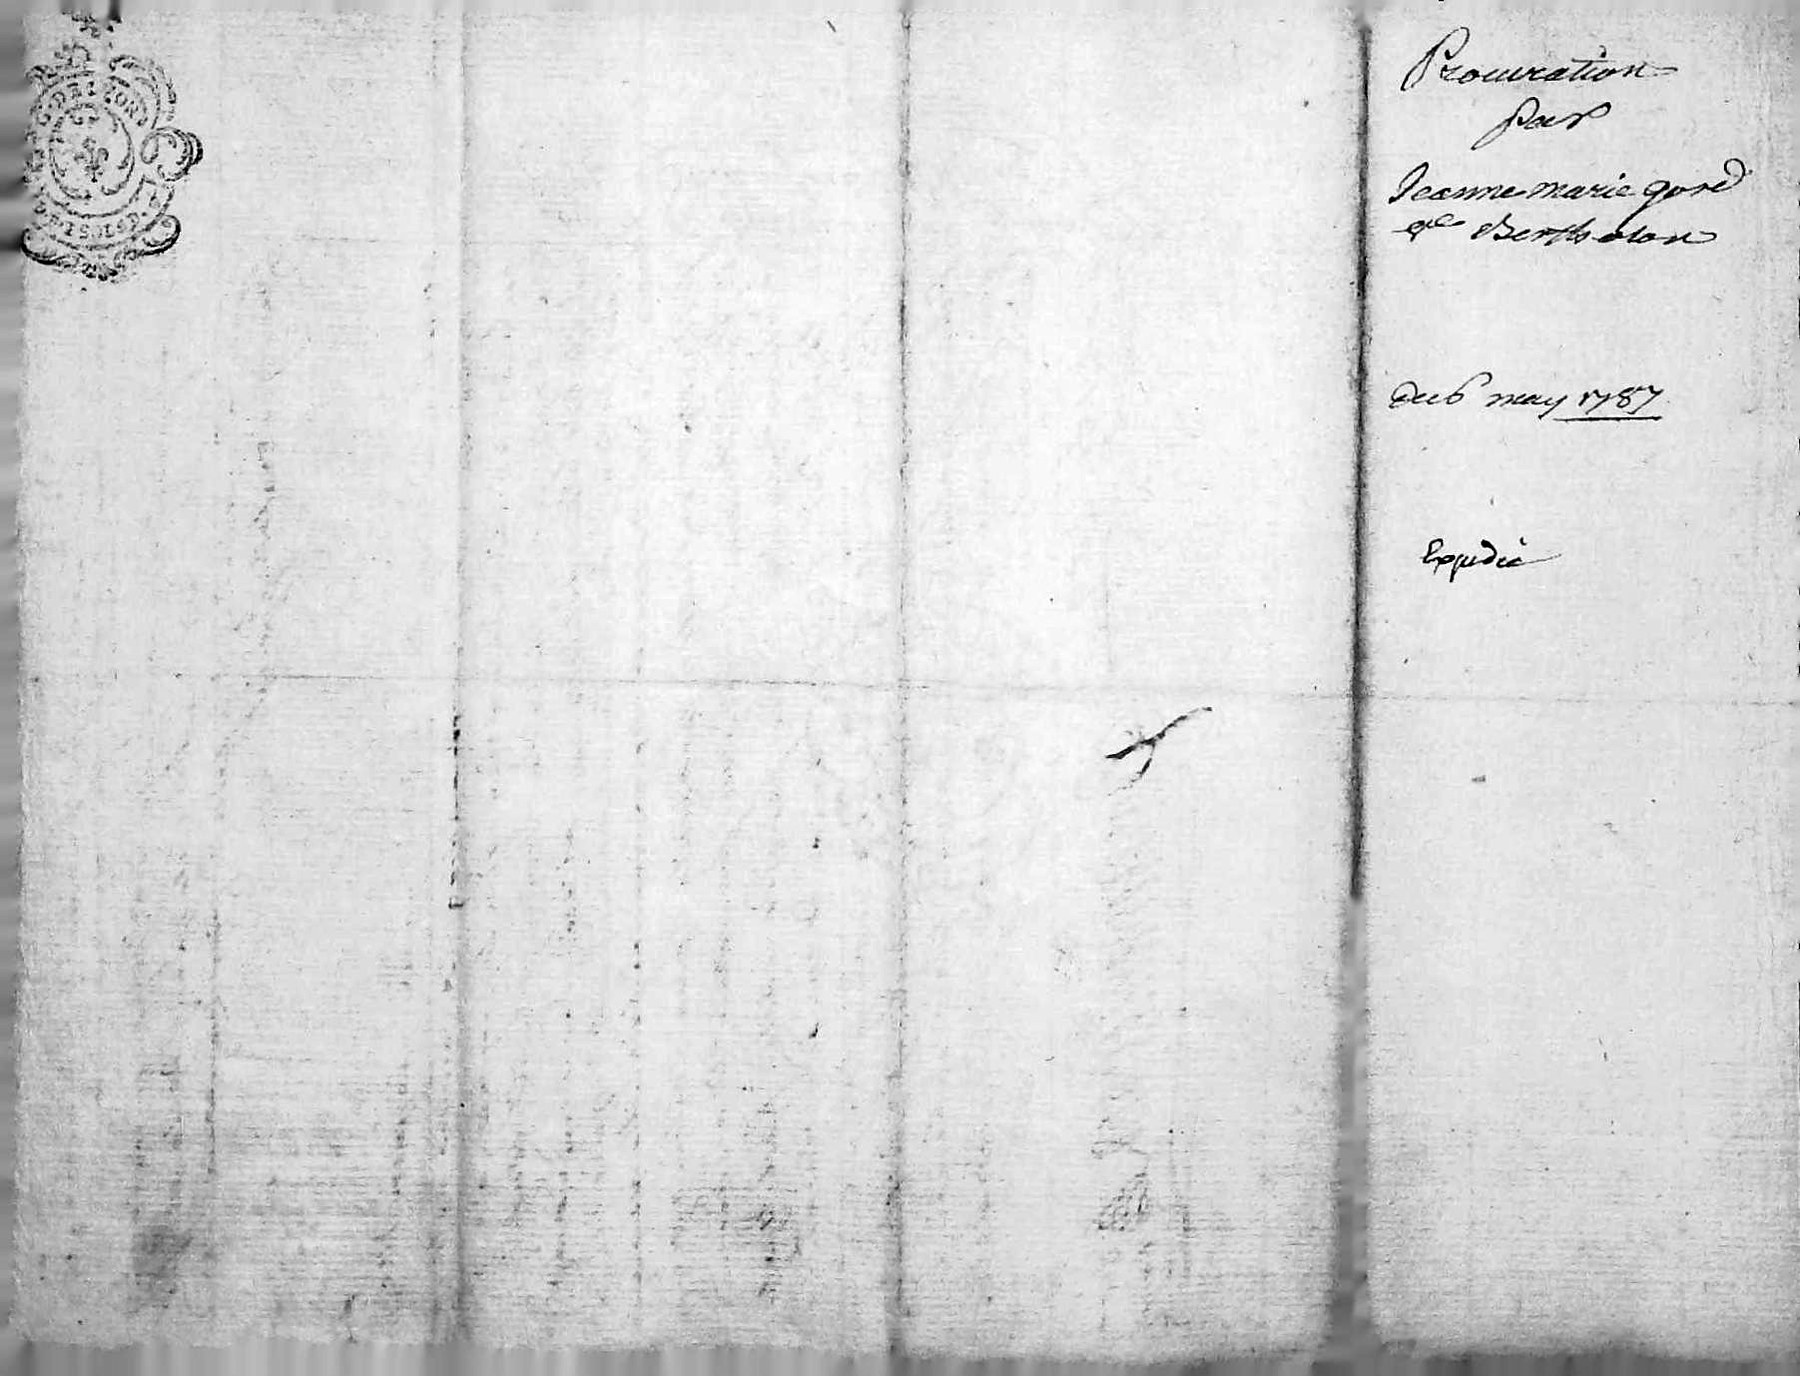 Procuration
par
Jeanne marie gored
Bertholon
du 6 may 1787
Expedié